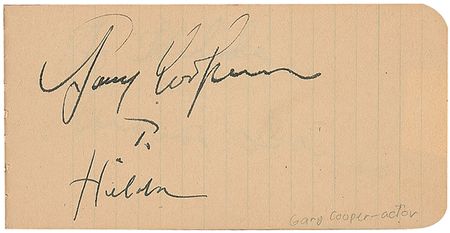 Gary Cooper
To
Hilda
Gary Cooper-actor